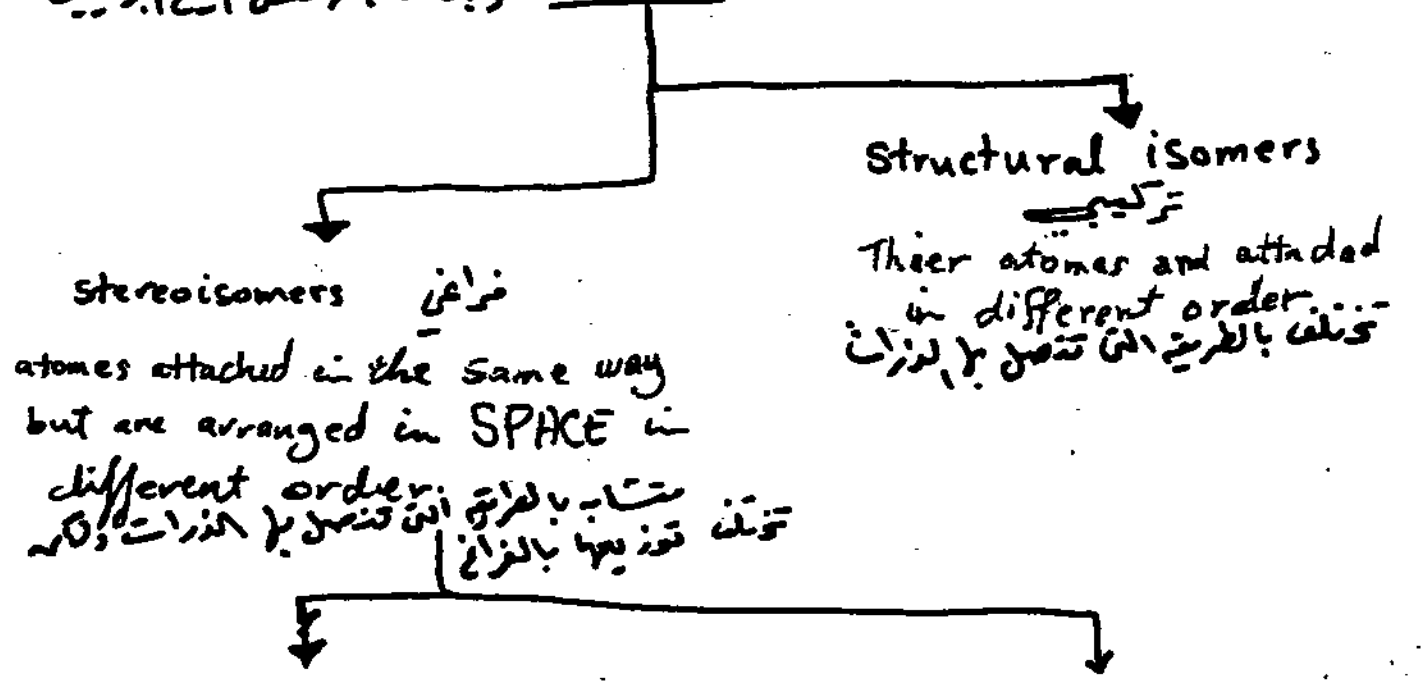 Structural isomers
تركيبي
Thier atomes and attached
in different order
تختلف بالطريقة التي تتصل بها الذرات
stereoisomers فراغي
atomes attached in the same way
but are arranged in SPACE in
different order.
متشابه بالطريقة التي تتصل بها الذرات ولكن
تختلف توزيعها بالفراغ